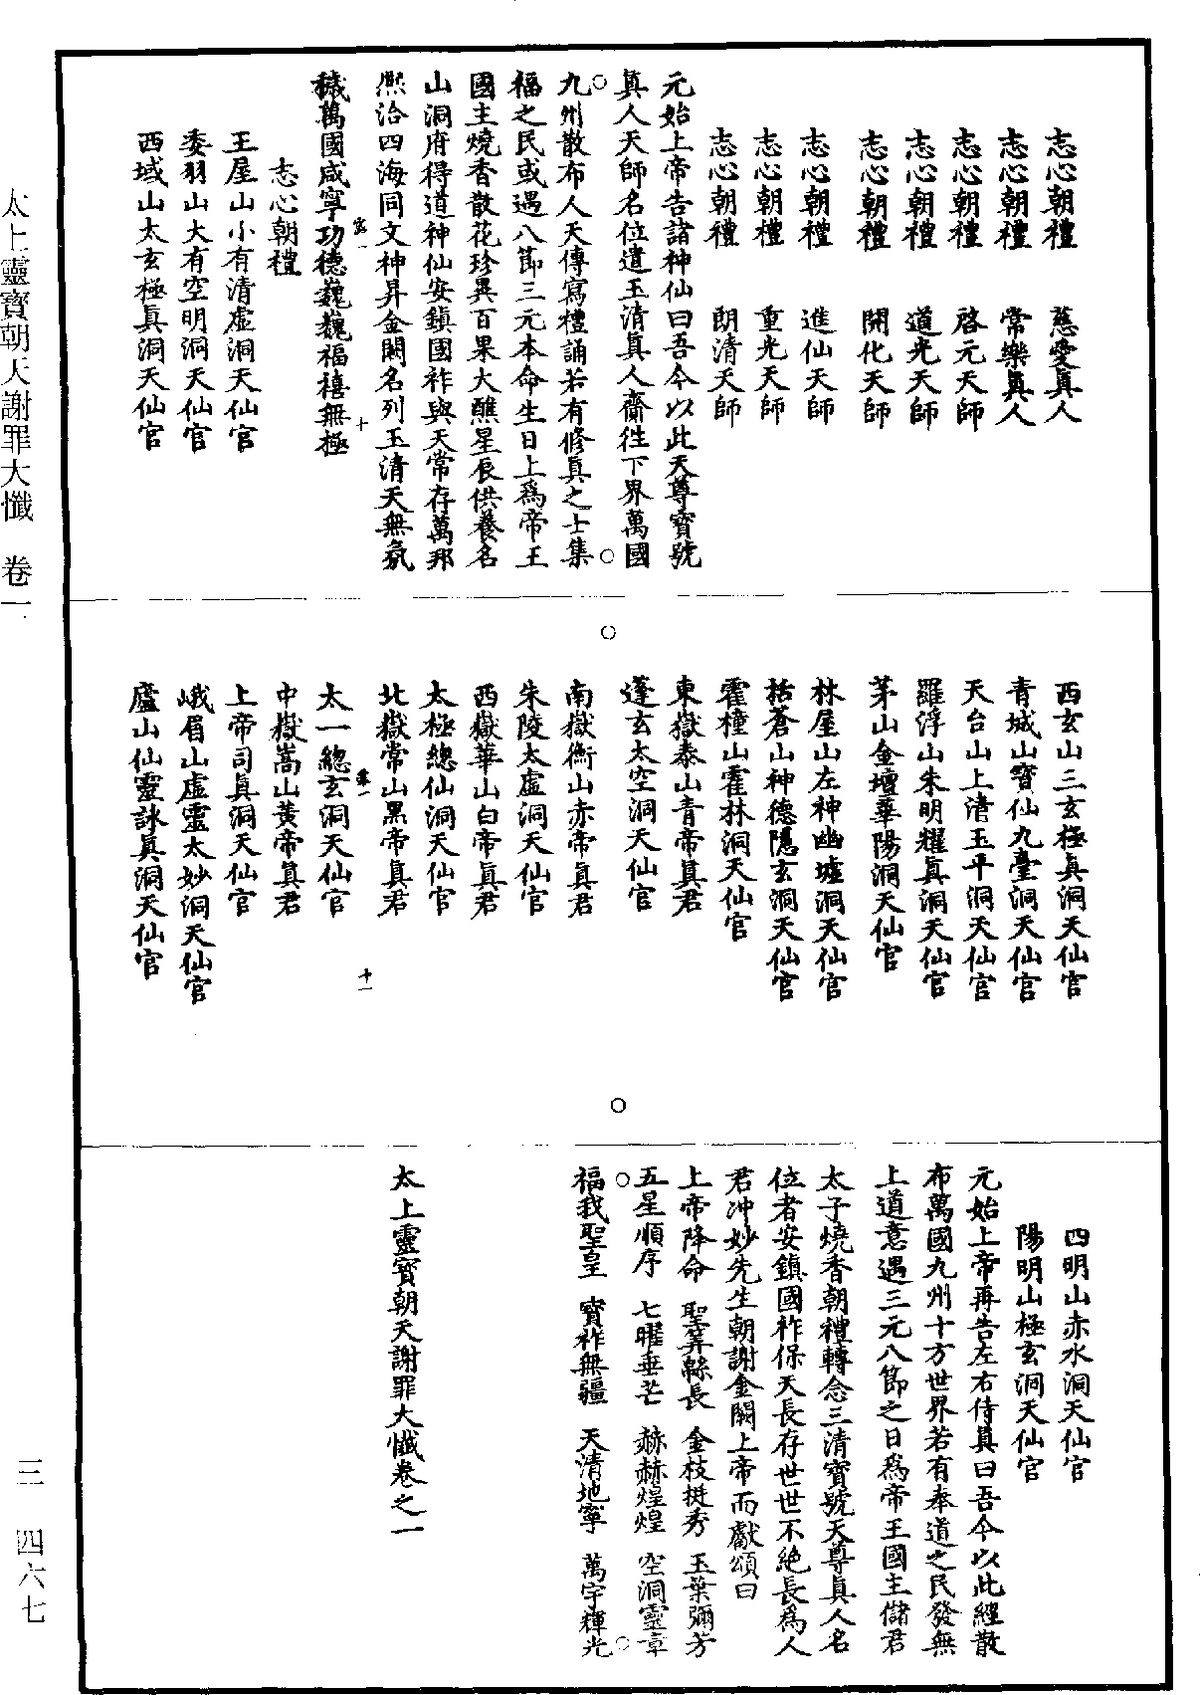 志心朝禮　慈愛真人
志心朝禮　常樂真人
志心朝禮　啓元天師
志心朝禮　道光天師
志心朝禮　開化天師
志心朝禮　進仙天師
志心朝禮　重光天師
志心朝禮　朗清天師
元始上帝告諸神仙曰吾今以此天尊寶號
真人天師名位遣玉清真人齎徃下界萬國
九州散布人天傳寫禮誦若有修真之士集
福之民或遇八節三元本命生日上爲帝王
國主燒香散花珍異百果大醮星辰供養名
山洞府得道神仙安鎮國祚與天常存萬邦
熈洽四海同文神昇金闕名列玉清天無氛
穢萬國咸寧功德巍巍福禧無極
十
志心朝禮
王屋山小有清虛洞天仙官
委羽山大有空明洞天仙官
西域山太玄極真洞天仙官
西玄山三玄極真洞天仙官
青城山寶仙九臺洞天仙官
天台山上清玉平洞天仙官
羅浮山朱明耀真洞天仙官
茅山金壇華陽洞天仙官
林屋山左神幽墟洞天仙官
括蒼山神德隱玄洞天仙官
霍橦山霍林洞天仙官
東嶽泰山青帝真君
蓬玄太空洞天仙官
南嶽衡山赤帝真君
朱陵太虛洞天仙官
西嶽華山白帝真君
太極總仙洞天仙官
北嶽常山黑帝真君
十一
太一總玄洞天仙官
中嶽嵩山黃帝真君
上帝司真洞天仙官
峨眉山虛靈太妙洞天仙官
廬山仙靈詠真洞天仙官
四明山赤水洞天仙官
陽明山極玄洞天仙官
元始上帝再告左右侍真曰吾今以此經散
布萬國九州十方世界若有奉道之民發無
上道意遇三元八節之日爲帝王國主儲君
太子燒香朝禮轉念三清寶號天尊真人名
位者安鎮國祚保天長存世世不絕長爲人
君冲妙先生朝謝金闕上帝而獻頌曰
上帝降命　聖筭緜長　金枝挺秀　玉葉彌芳
五星順序　七曜垂芒　赫赫煌煌　空洞靈章
福我聖皇　寶祚無疆　天清地寧　萬宇輝光
太上靈寶朝天謝罪大懺卷之一
太上靈寶朝天謝罪大懺　卷一
三　四六七